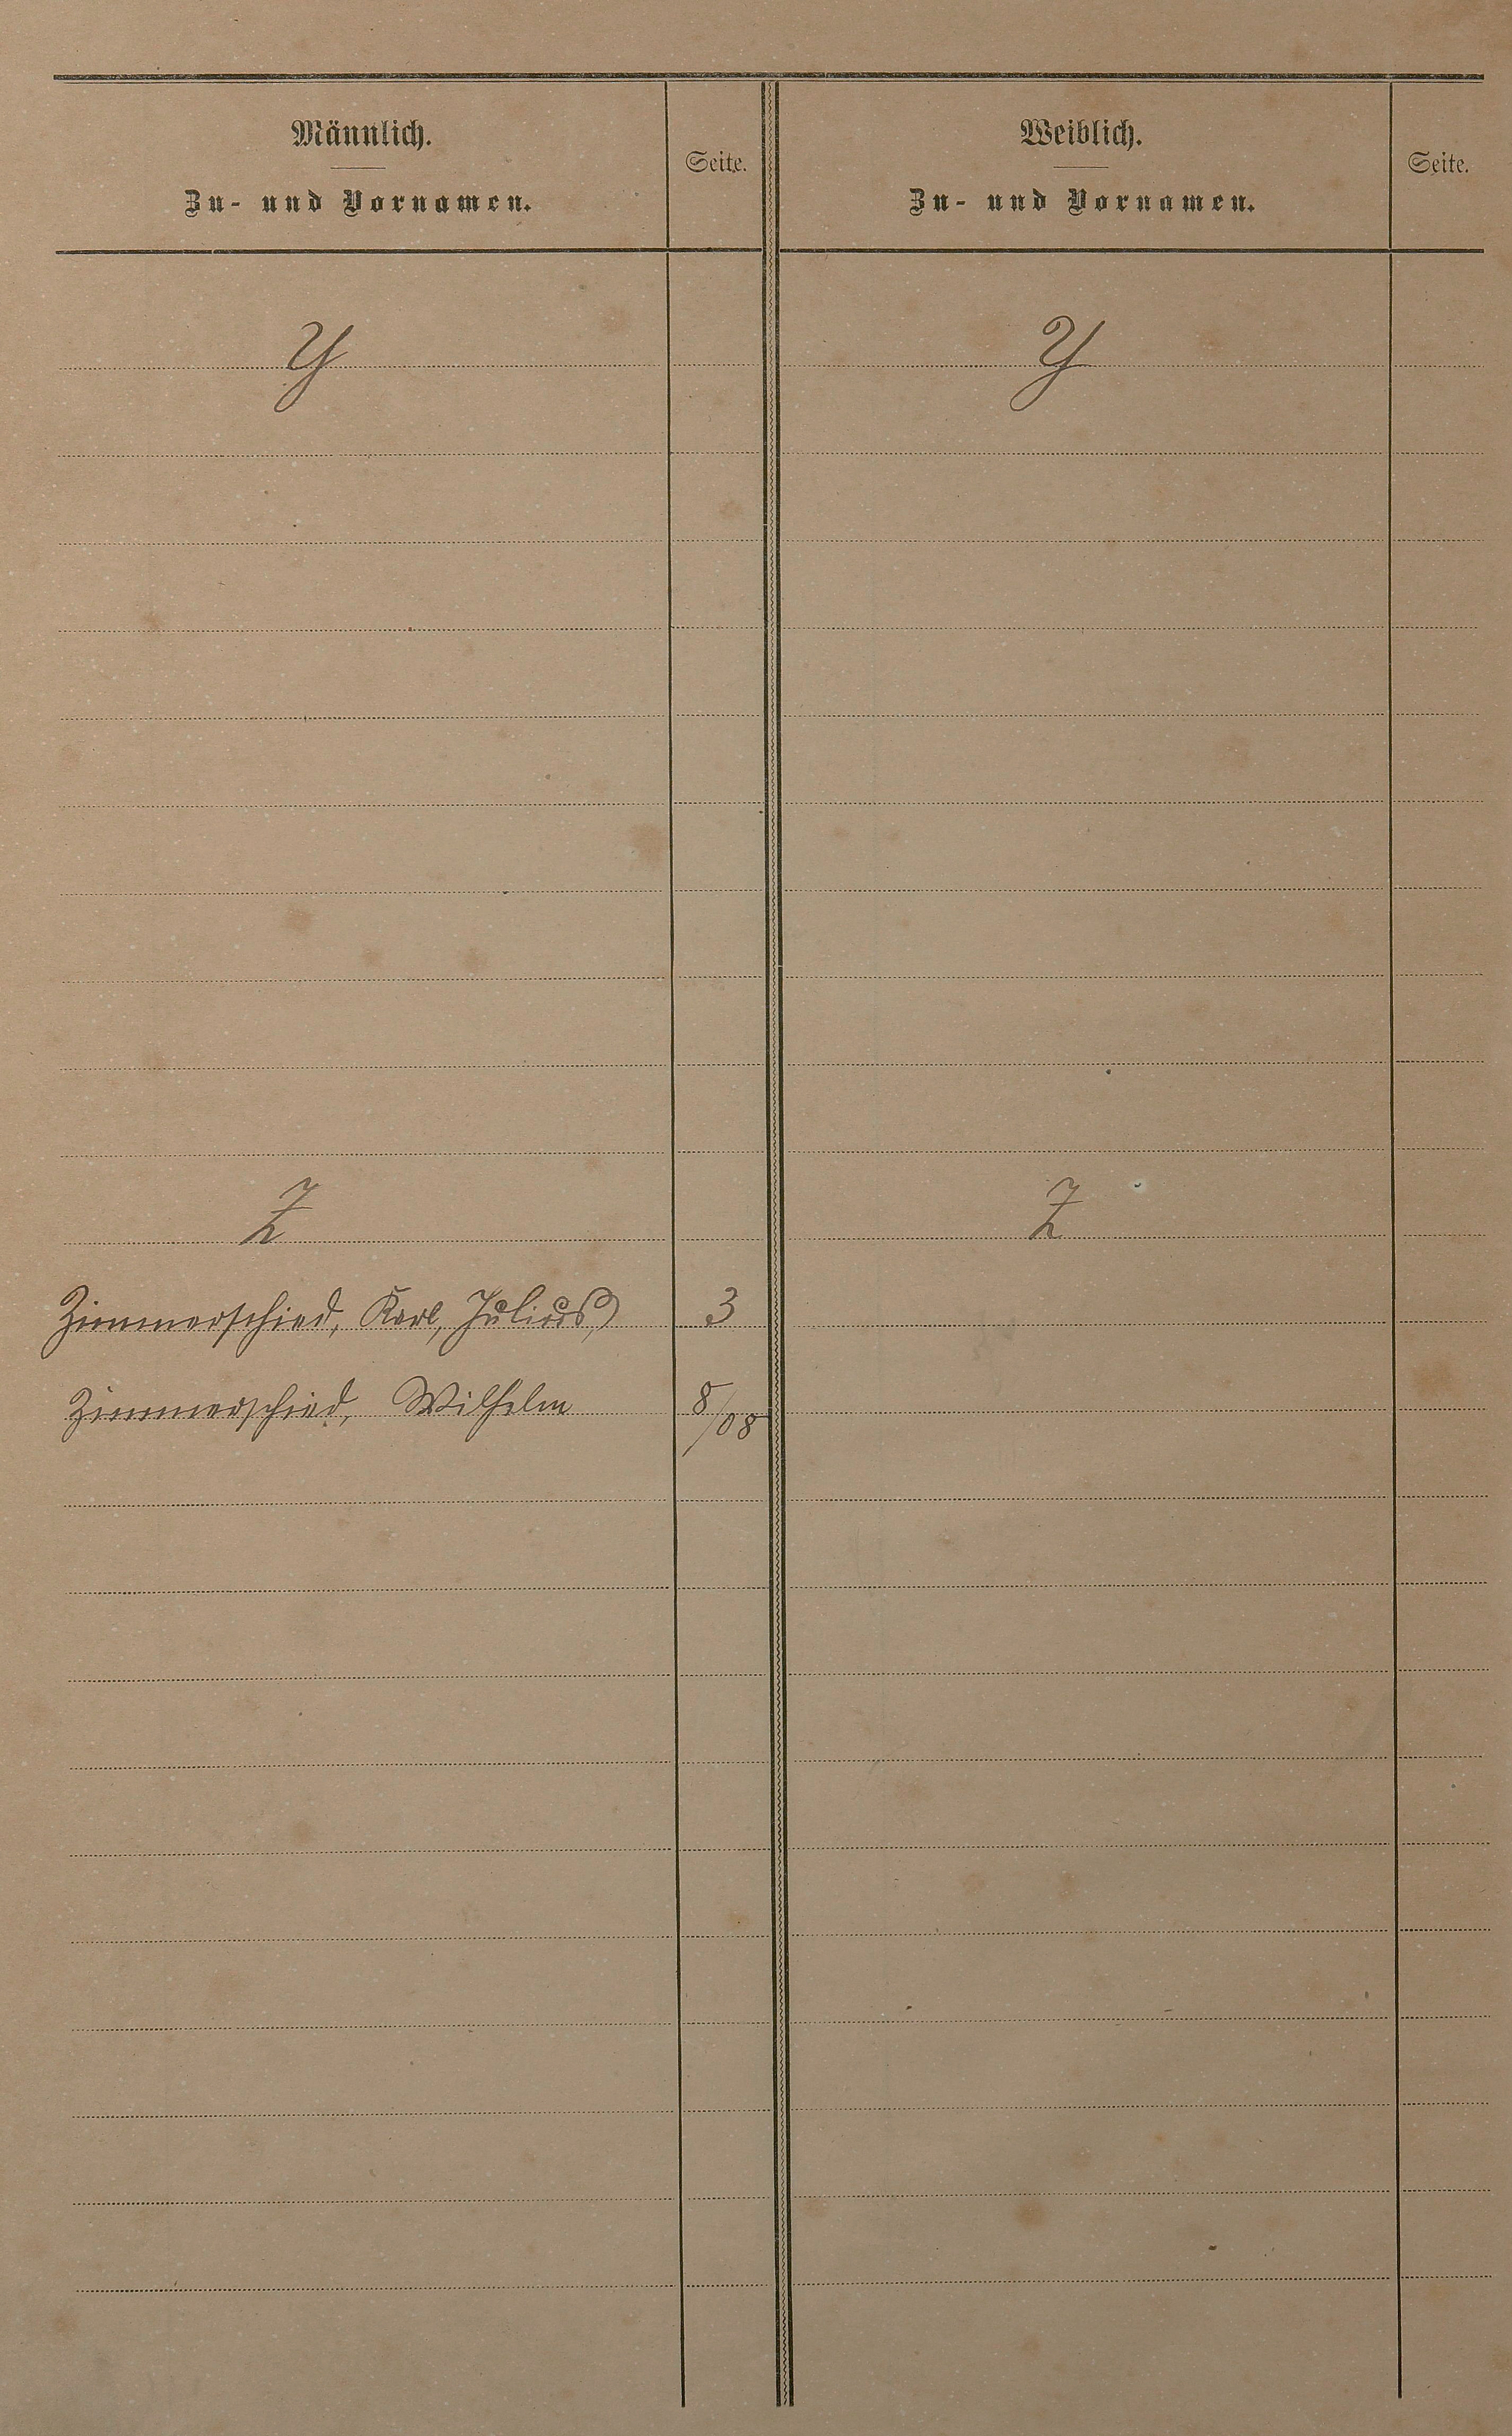 Männlich.
Zu- und Vornamen.
Seite.
Weiblich.
Zu- und Vornamen.
Seite.
Y
Y
Z
Z
Zimmerschied, Karl, Julius,
3
Zimmerschied, Wilhelm
8/08